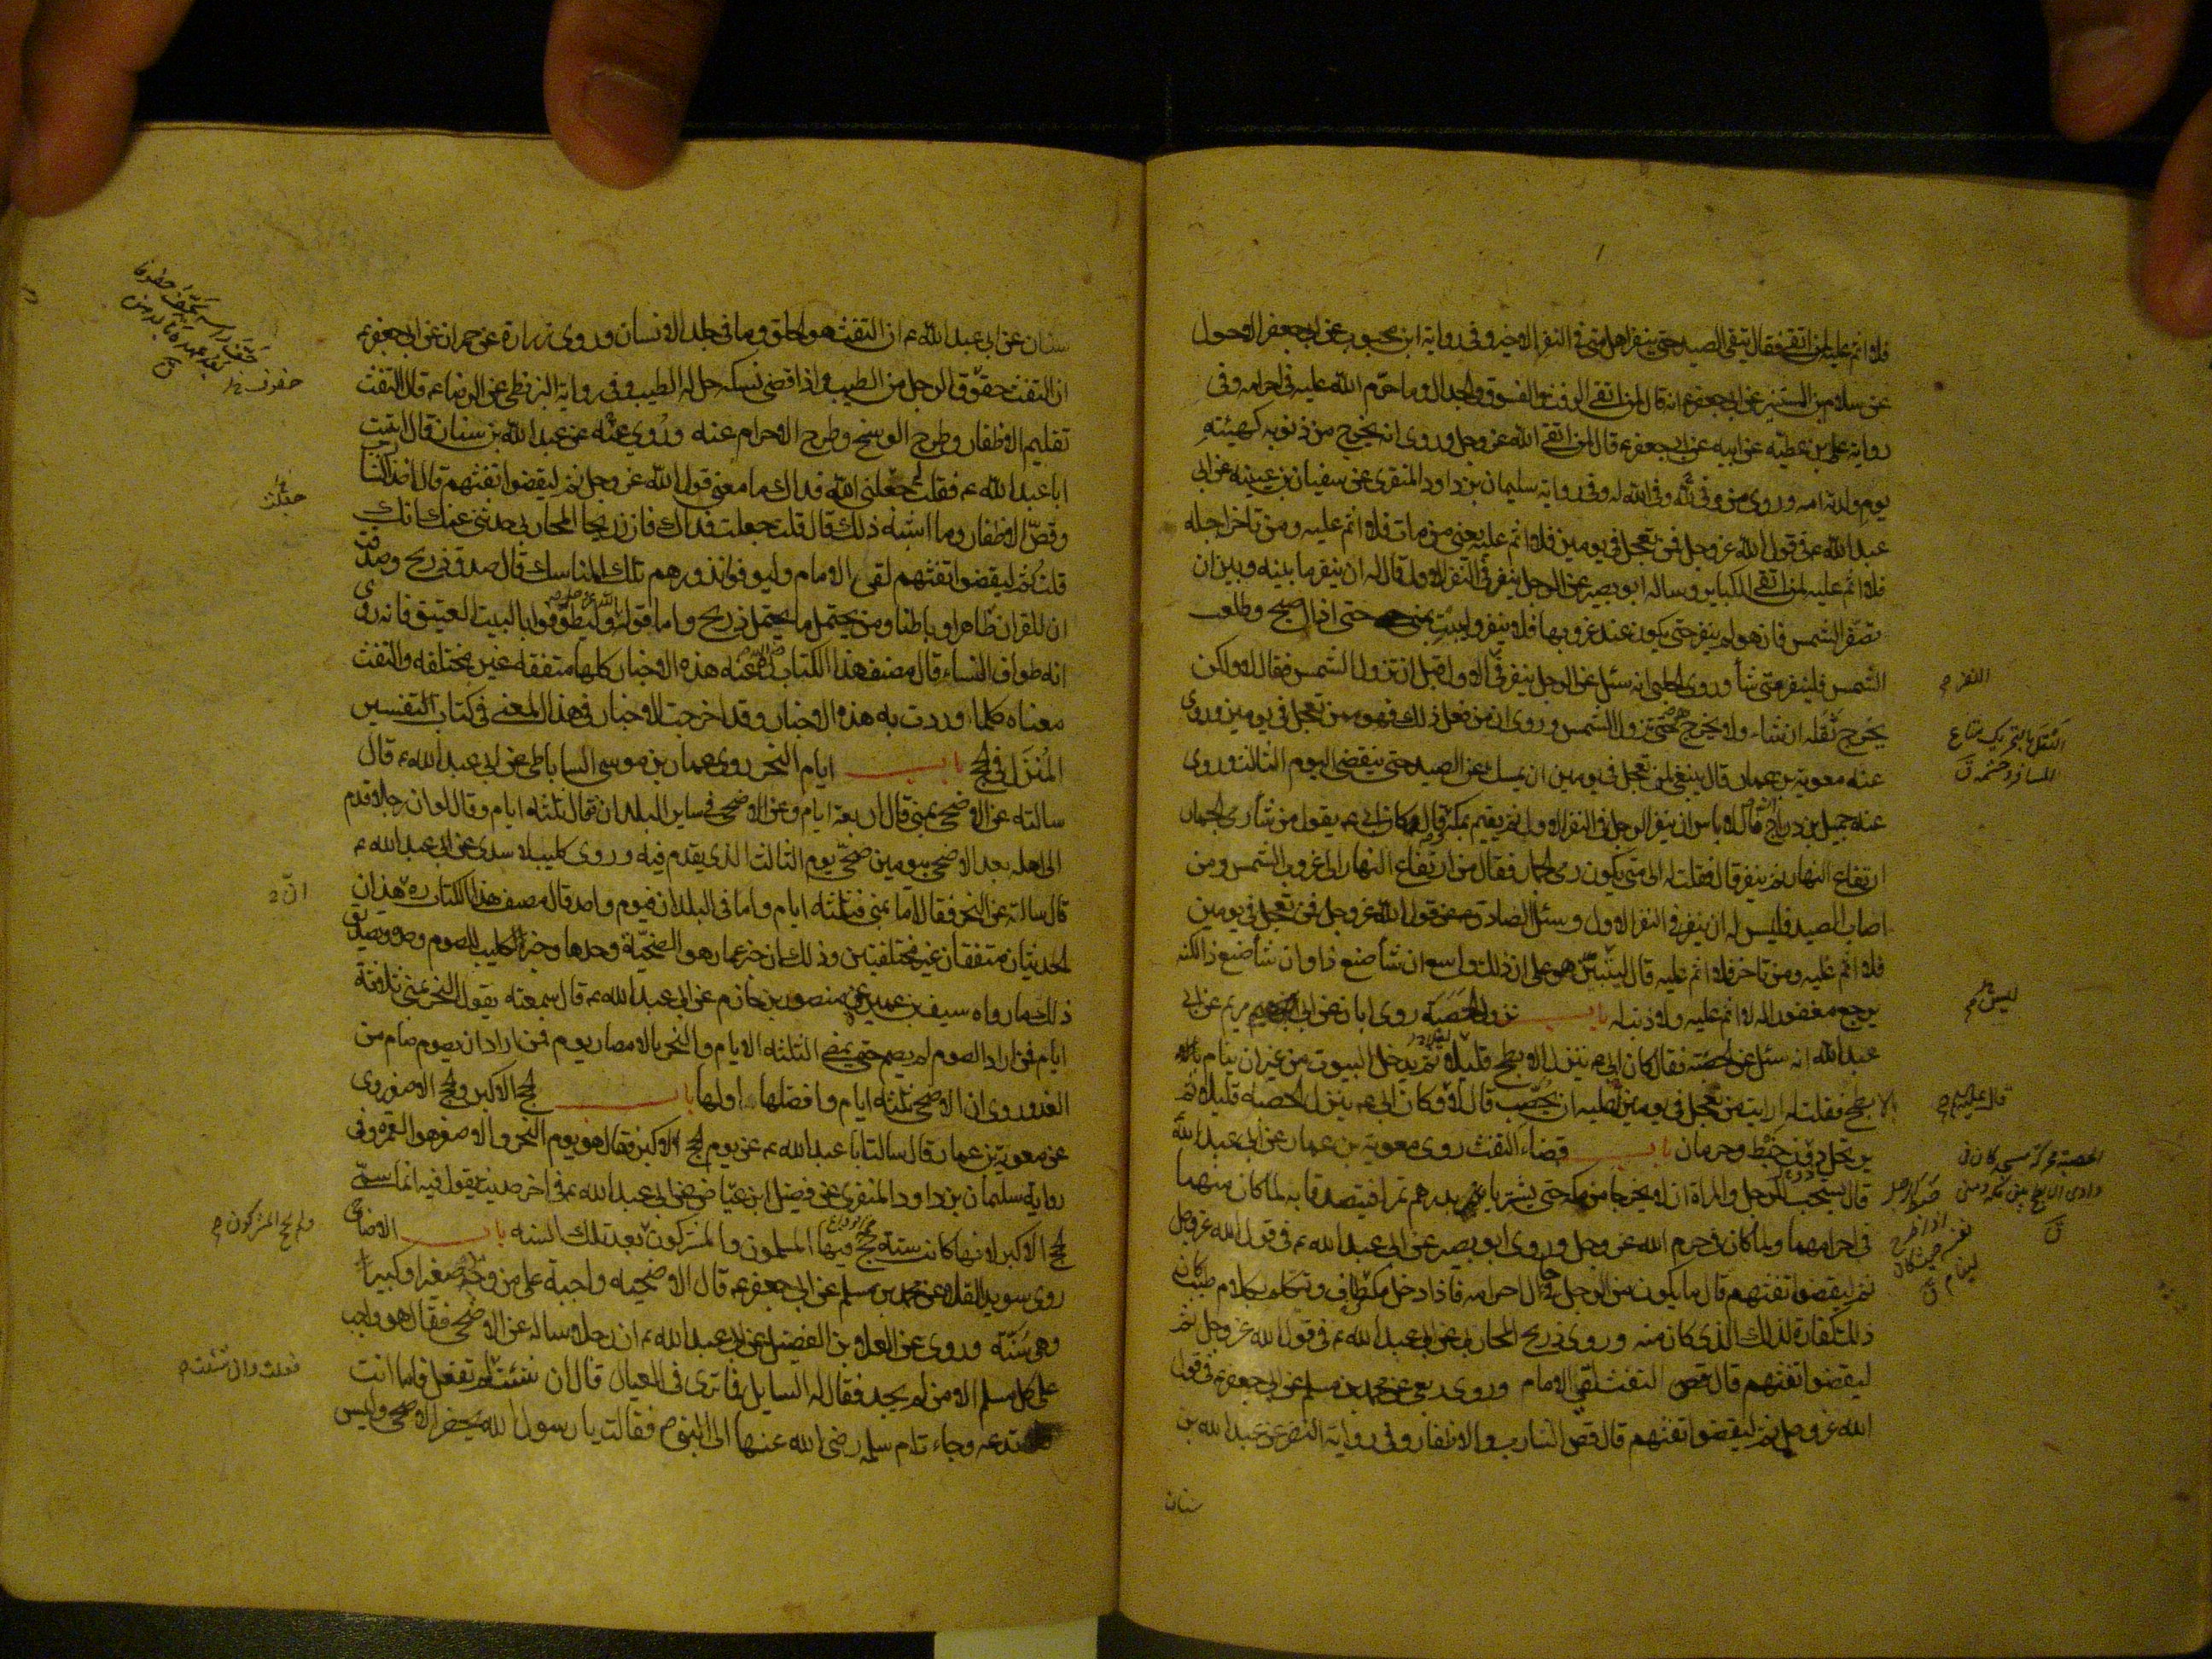 فلا اثم عليه لمن اتقى فقال يتقى الصيد حتى ينفر اهل منى فى النفر الاخير وفى رواية ابن محبوب عن ابى جعفر الاحول
عن سلام بن المستنير عن ابى جعفر ع انه قال لمن اتقى الرفث والفسوق والجدال وما حرم الله عليه فى احرامه وفى
رواية على بن عطيه عن ابيه عن ابى جعفر ع قال لمن اتقى الله عز وجل وروى انه يخرج من ذنوبه كهيئته
يوم ولدته امه وروى من وفى لله وفى الله له وفى رواية سليمان بن داود المنقرى عن سفيان بن عيينه عن ابى
عبد الله ع فى قول الله عز وجل فمن تعجل فى يومين فلا اثم عليه يعنى من مات فلا اثم عليه ومن تاخر اجله
فلا اثم عليه لمن اتقى الكباير وساله ابو بصير عن الرجل ينفر فى النفر الاول قال له ان ينفر ما بينه وبين ان
تصفر الشمس فان هو لم ينفر حتى يكون عند غروبها فلا ينفر وليبت بمنى حتى اذا اصبح وطلعت
الشمس فلينفر متى شأ وروى الحلبى انه سئل عن الرجل ينفر فى الاول قبل ان تزول الشمس فقال لا ولكن
يخرج ثقله ان شاء ولا يخرج هو حتى تزول الشمس وروى ان من فعل ذلك فهو ممن تعجل فى يومين وروى
عنه معوية بن عمار قال ينبغى لمن تعجل فى يومين ان يمسك عن الصيد حتى ينقضى اليوم الثالث وروى
عنه جميل بن دراج انه قال لا باس ان ينفر الرجل فى النفر الاول ثم يقيم بمكة وقال كان ابى ع يقول من شأ رمى الجمار
ارتفاع النهار ثم ينفر قال فقلت له الى متى يكون رمى الجمار فقال من ارتفاع النهار الى غروب الشمس ومن
اصاب الصيد فليس له ان ينفر فى النفر الاول وسئل الصادق ع عن قول الله عز وجل فمن تعجل فى يومين
فلا اثم عليه ومن تاخر فلا اثم عليه قال ليس هو على ان ذلك واسع ان شأ صنع ذا وان شأ صنع ذا لكنه
يرجع مغفورا له لا اثم عليه ولا ذنب له باب نزول الحصبة روى ابان عن ابى مريم عن ابى
عبد الله انه سئل عن الحصبة فقال كان ابى ع ينزل الابطح قليلا ثم يدخل البيوت من غير ان ينام
بالابطح فقلت له ارايت من تعجل فى يومين عليه ان يحصب قال لا وكان ابى ع ينزل الحصبة قليلا ثم
يرتحل دون خبط وحرمان باب قضاء التفث روى معوية بن عمار عن ابى عبد الله
قال يستحب للرجل والمراة ان لا يخرجا من مكه حتى يشتريا بدرهم تمرا فيتصدقا به لما كان منهما
فى احرامهما ولما كان فى حرم الله عز وجل وروى ابو بصير عن ابى عبد الله ع فى قول الله عز وجل
ثم ليقضوا تفثهم قال ما يكون من الرجل فى حال احرامه فاذا دخل مكة طاف وتكلم بكلام طيب كان
ذلك كفارة لذلك الذى كان منه وروى ذريح المحاربى عن ابى عبد الله ع فى قول الله عز وجل ثم
ليقضوا تفثهم قال التفث لقى الامام وروى ربعى عن محمد بن مسلم عن ابى جعفر ع فى قول
الله عز وجل ثم ليقضوا تفثهم قال قص الشارب والاظفار وفى رواية النضر عن عبد الله بن
سنان
النفر
الثقل بالتحريك متاع
المسافر وحشمه ق
ليس
قال عليه
سنان عن ابى عبد الله ع ان التفث هو الحلق وما فى جلد الانسان وروى زرارة عن حمران عن ابى جعفر ع
ان التفث حفوف الرجل من الطيب فاذا قضى نسكه حل له الطيب وفى رواية البزنطى عن الرضا ع قال التفث
تقليم الاظفار وطرح الوسخ وطرح الاحرام عنه وروى عنه عن عبد الله بن سنان قال اتيت
ابا عبد الله ع فقلت جعلنى الله فداك ما معنى قول الله عز وجل ثم ليقضوا تفثهم قال اخذ الشارب
وقص الاظفار وما اشبه ذلك قال قلت جعلت فداك فان ذريحا المحاربى حدثنى عنك انك
قلت ثم ليقضوا تفثهم لقى الامام وليوفوا نذورهم تلك المناسك قال صدق ذريح وصدقت
ان للقران ظاهرا وباطنا ومن يحتمل ما يحتمل ذريح واما قول الله عز وجل وليطوفوا بالبيت العتيق فانه روى
انه طواف النساء قال مصنف هذا الكتاب رضى الله عنه هذه الاخبار كلها متفقة غير مختلفة والتفث
معناه كلما وردت به هذه الاخبار وقد اخرجت الاخبار فى هذا المعنى فى كتاب التفسير
المنزل فى الحج باب ايام النحر روى عمار بن موسى الساباطى عن ابى عبد الله ع قال
سالته عن الاضحى بمنى قال اربعة ايام وعن الاضحى فى ساير البلدان قال ثلثه ايام وقال لو ان رجلا قدم
الى اهله بعد الاضحى بيومين ضحى يوم الثالث الذى يقدم فيه وروى كليب الاسدى عن ابى عبد الله ع
قال سالته عن النحر فقال اما بمنى فثلثه ايام واما فى البلدان فيوم واحد قال مصنف هذا الكتاب ره هذان
الحديثان متفقان غير مختلفين وذلك ان خبر عمار هو الضحية وحدها وخبر كليب للصوم وحده وتصديق
ذلك ما رواه سيف بن عميرة عن منصور بن حازم عن ابى عبد الله ع قال سمعته يقول النحر بمنى ثلاثة
ايام فمن اراد الصوم لم يصم حتى يمضى الثلثه الايام والنحر بالامصار يوم فمن اراد ان يصوم صام من
الغد وروى ان الاضحى ثلثه ايام وافضلها اولها باب الحج الاكبر والحج الاصغر روى
عن معوية بن عمار قال سالت ابا عبد الله ع عن يوم الحج الاكبر فقال هو يوم النحر والاصغر هو العمرة وفى
رواية سليمان بن داود المنقرى عن فضيل ابن عياض عن ابى عبد الله ع فى اخر حديث يقول فيه انما سمى
الحج الاكبر لانها كانت سنة حج فيها المسلمون والمشركون بعد تلك السنه باب الاضاحى
روى سويد القلاء عن محمد بن مسلم عن ابى جعفر ع قال الاضحيه واجبة على من وجد من صغير او كبير
وهى سنة وروى عن العلاء بن الفضيل عن ابى عبد الله ع ان رجلا ساله عن الاضحى فقال هو واجب
على كل مسلم الا من لم يجد فقال له السايل فما ترى فى العيال قال ان شئت لم تفعل فاما انت
فلا تدعه وجاءت ام سلمه رضى الله عنها الى النبى ص فقالت يا رسول الله يحضر الاضحى وليس
حفوف
جعلت
ان
ولم يحج المشركون
فعلت وان شئت